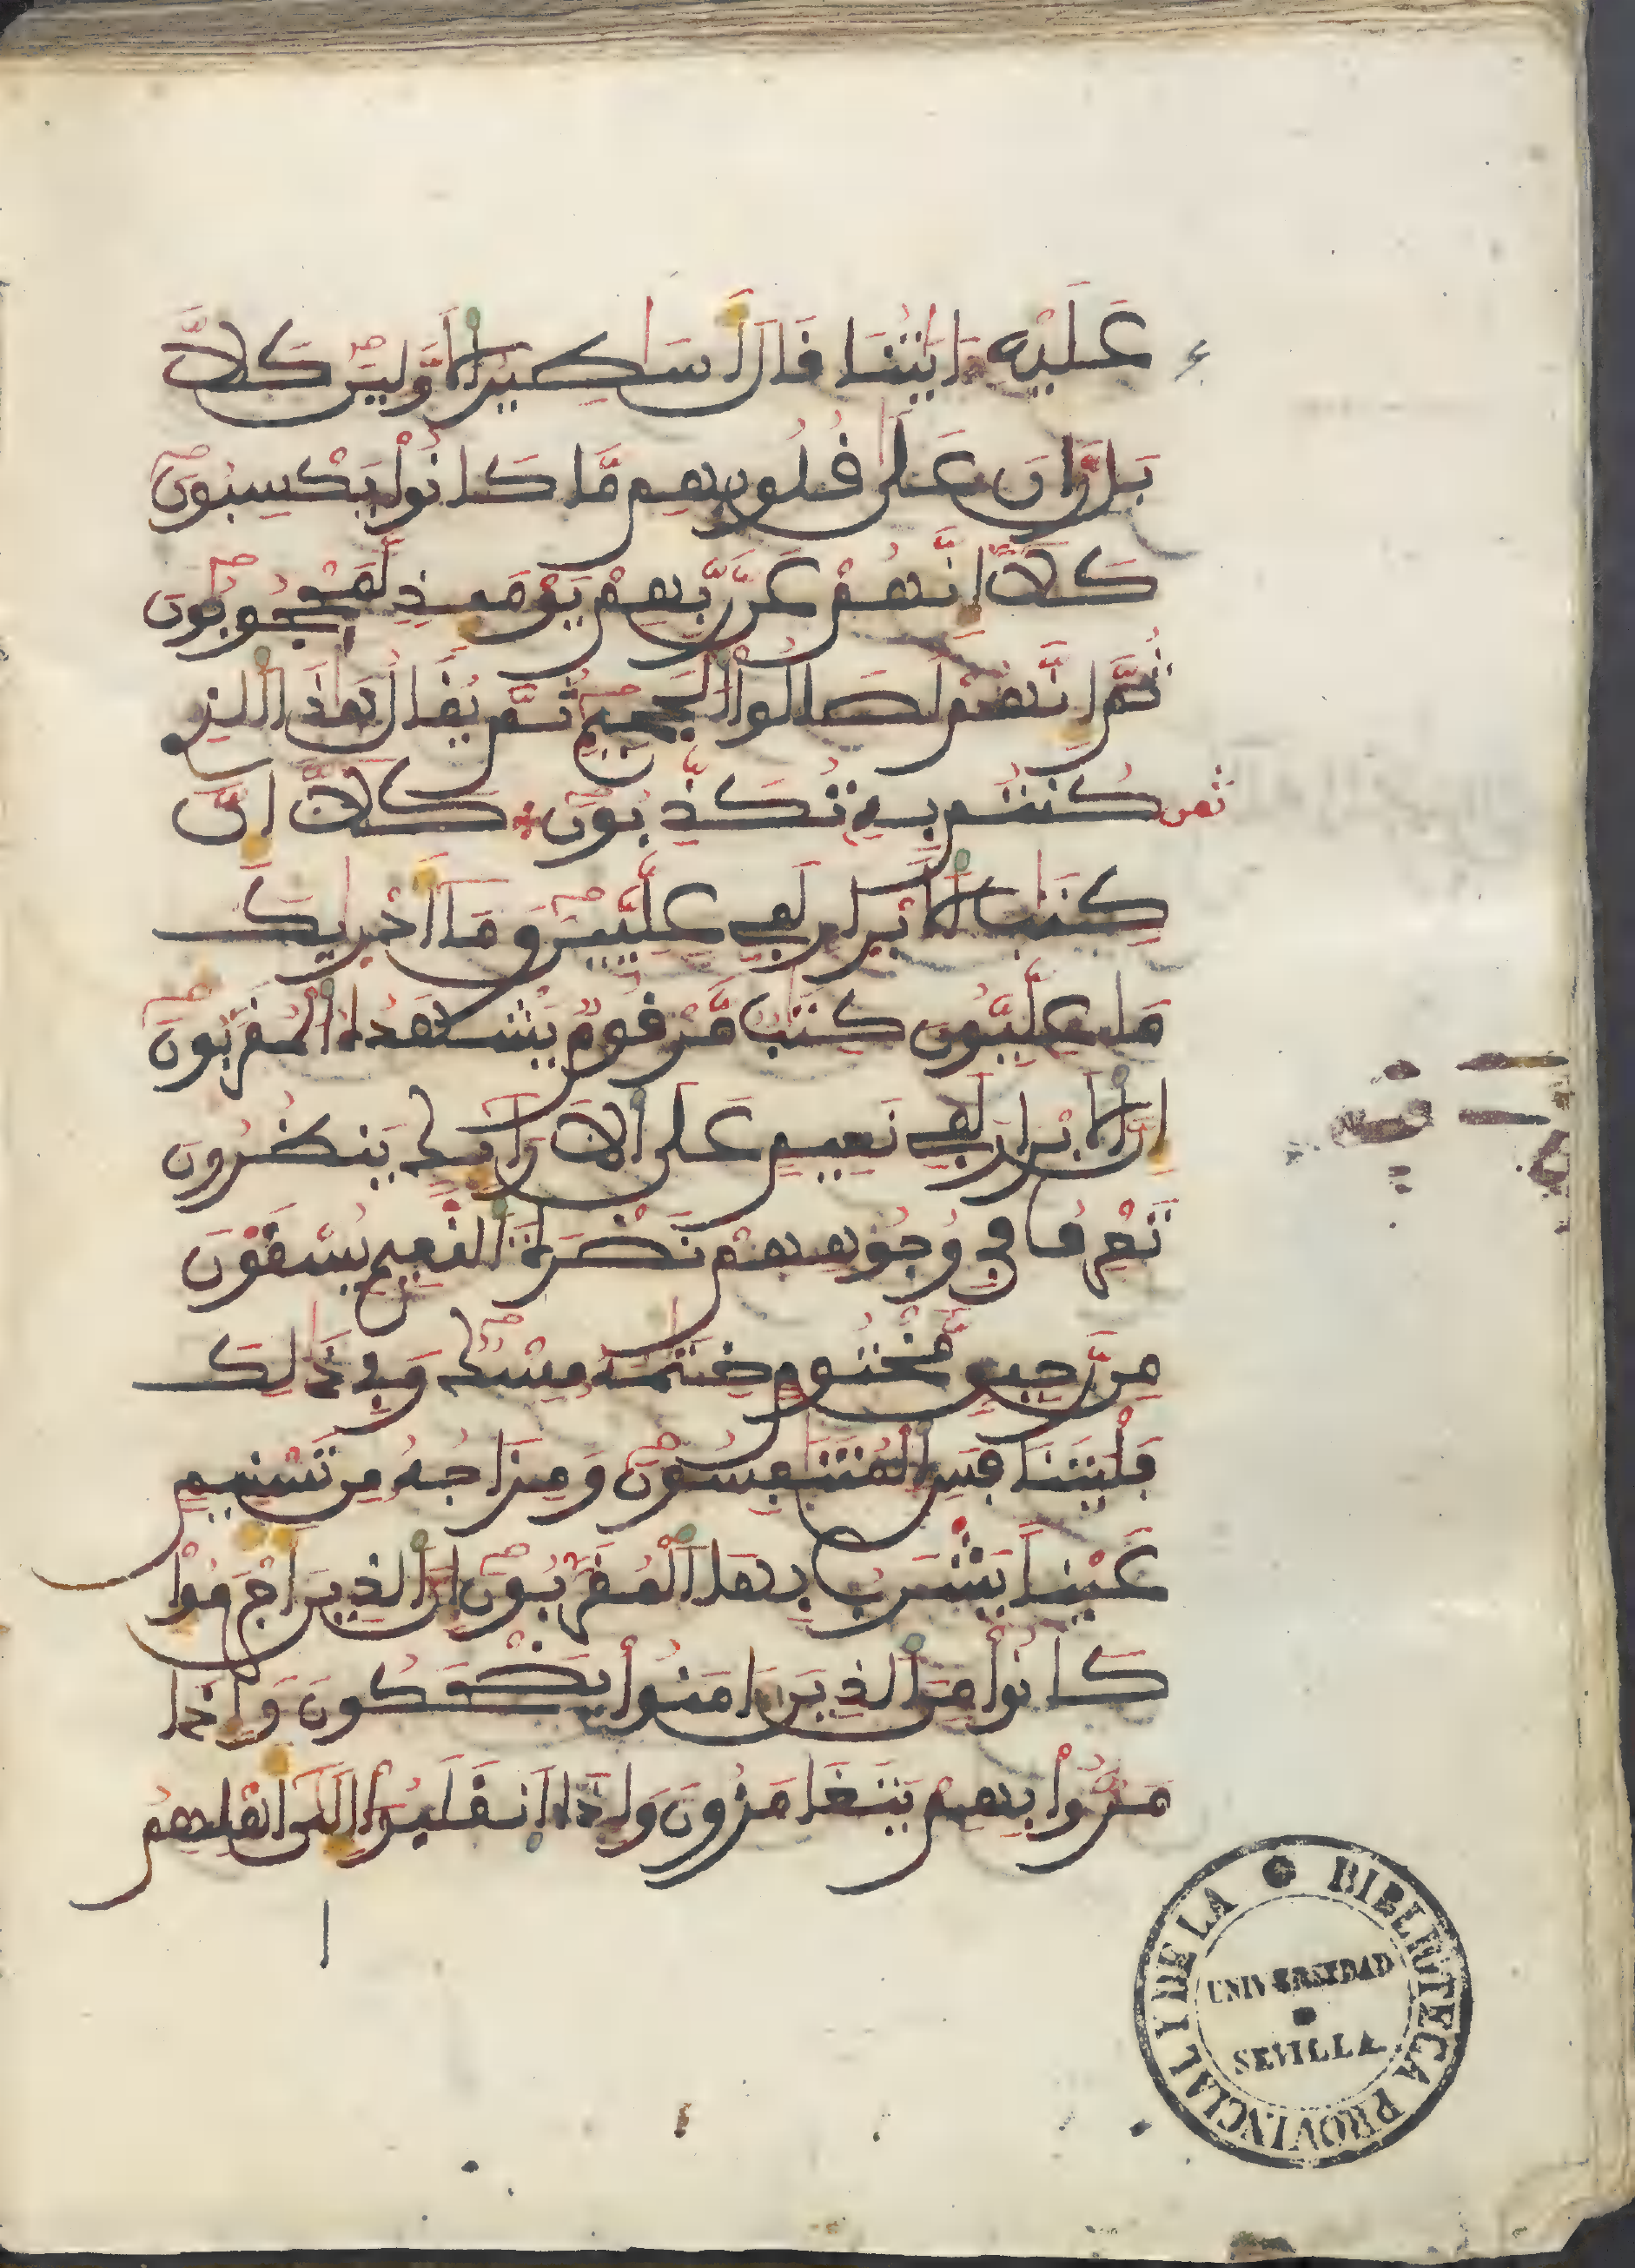 عَلَيْهِ ءَايَٰتُنَا قَالَ أَسَٰطِيرُ الَاوَّلِينَ كَلَّا
بَل رَّانَ عَلَىٰ قُلُوبِهِم مَّا كَانُوا يَكْسِبُونَ
كَلَّا إِنَّهُمْ عَن رَّبِّهِمْ يَوْمَئِذٍ لَّمَحْجُوبُونَ
ثُمَّ إِنَّهُمْ لَصَالُوا الْجَحِيمِ ثُمَّ يُقَالُ هَٰذَا الذِي
ثمن كُنتُم بِهِ تُكَذِّبُونَ كَلَّا إِنَّ
كِتَٰبَ الَابْرَارِ لَفِي عِلِّيِّينَ وَمَا أَدْرَىٰكَ
مَا عِلِّيُّونَ كِتَٰبٌ مَّرْقُومٌ يَشْهَدُهُ الْمُقَرَّبُونَ
إِنَّ الَابْرَارَ لَفِي نَعِيمٍ عَلَى الَارَائِكِ يَنظُرُونَ
تَعْرِفُ فِي وُجُوهِهِمْ نَضْرَةَ النَّعِيمِ يُسْقَوْنَ
مِن رَّحِيقٍ مَّخْتُومٍ خِتَٰمُهُ مِسْكٌ وَفِي ذَٰلِكَ
فَلْيَتَنَافَسِ الْمُتَنَٰفِسُونَ وَمِزَاجُهُ مِن تَسْنِيمٍ
عَيْنًا يَشْرَبُ بِهَا الْمُقَرَّبُونَ إِنَّ الذِينَ أَجْرَمُوا
كَانُوا مِنَ الذِينَ ءَامَنُوا يَضْحَكُونَ وَإِذَا
مَرُّوا بِهِمْ يَتَغَامَزُونَ وَإِذَا انقَلَبُوا إِلَىٰ أَهْلِهِمُ
ا
BIBLIOTECA PROVINCIAL I DE LA
UNIVERSIDAD
SEVILLA